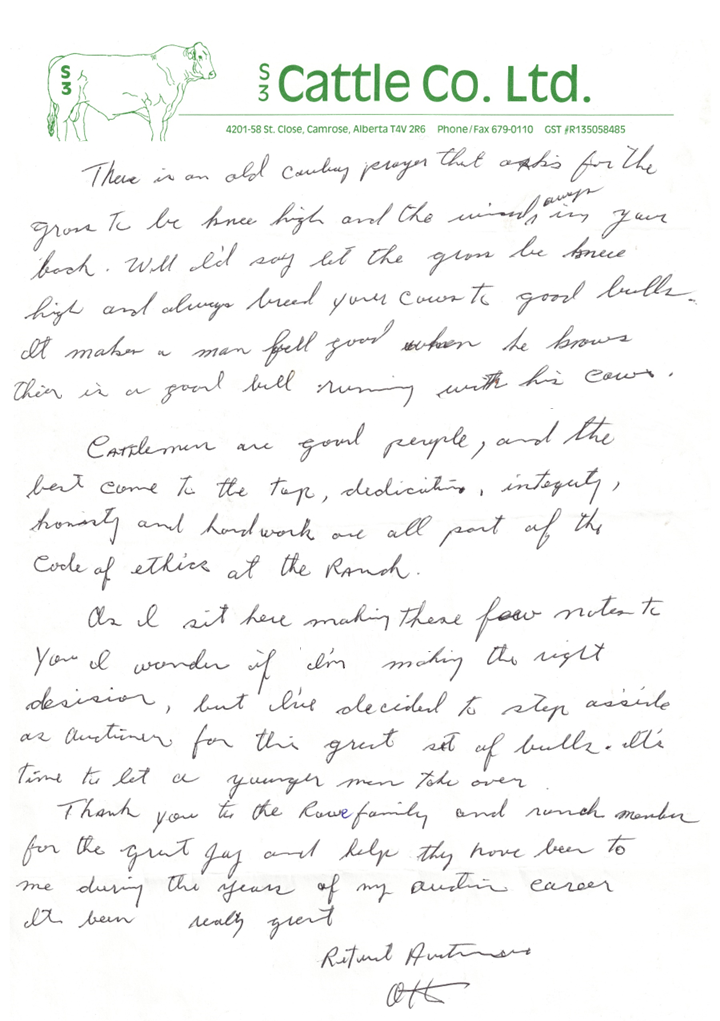 S
3
S
3 Cattle Co. Ltd.
4201-58 St. Close, Camrose, Alberta T4V 2R6 Phone/Fax 679-0110 GST #R135058485
There is an old cowboy prayer that asks for the
always
grass to be knee high and the wind in your
back. Well I'd say let the grass be knee
high and always breed your cows to good bulls.
It makes a man feel good when he knows
thier is a good bull running with his cows.
Cattlemen are good people, and the
best come to the top, dedication, integrity,
honesty and hardwork are all part of the
Code of ethics at the Ranch.
As I sit here making these few notes to
you I wonder if I'm making the right
desision, but I've decided to step asside
as for this great set of bulls. It's
time to let a younger man take over
Thank you to the Rowe family and ranch member
for the great and help they have been to
me during the years of my career
It's been really great
Otto